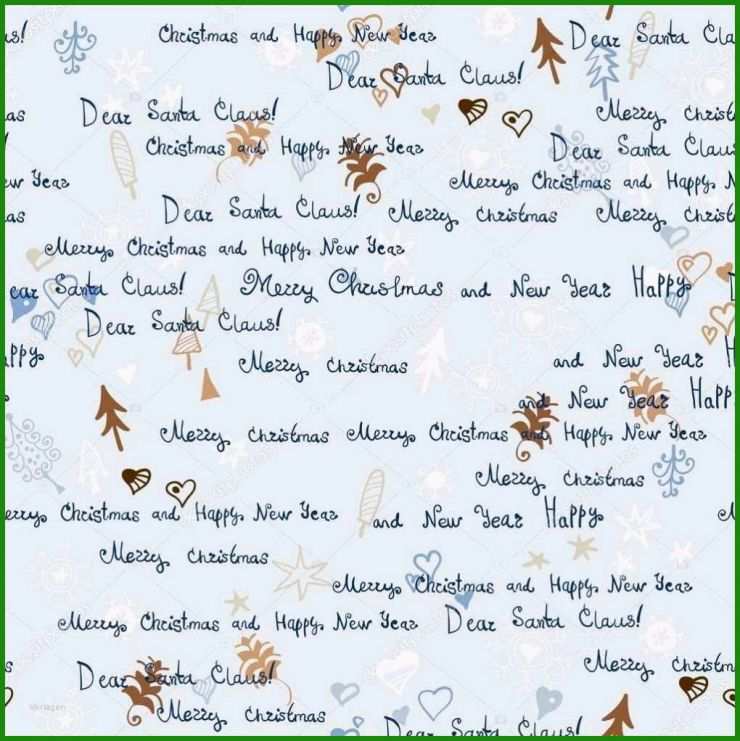 s!
Christmas and Happy New Year
Dear Santa Cla
Dear Santa Claus!
as
Dear Santa Claus!
Merry Christ
Christmas and Happy New Year
Dear Santa Clau
ew Year
Merry Christmas and Happy N
as
Dear Santa Claus!
Merry Christmas
Merry Christ
Merry Christmas and Happy New Year
ear Santa Claus!
Merry Christmas and New Year Happy
Dear Santa Claus!
ppy
Merry Christmas
and New Year H
and New Year Happ
Merry Christmas
Merry Christmas and Happy New Year
Merry Christmas
erry Christmas and Happy New Year
and New Year Happy
Merry Christmas
Merry Christmas and Happy New Year
Merry Christmas and Happy New Year
Dear Santa Claus!
s
Dear Santa Claus!
Merry Christm
Merry Christmas
Dear Santa Claus!